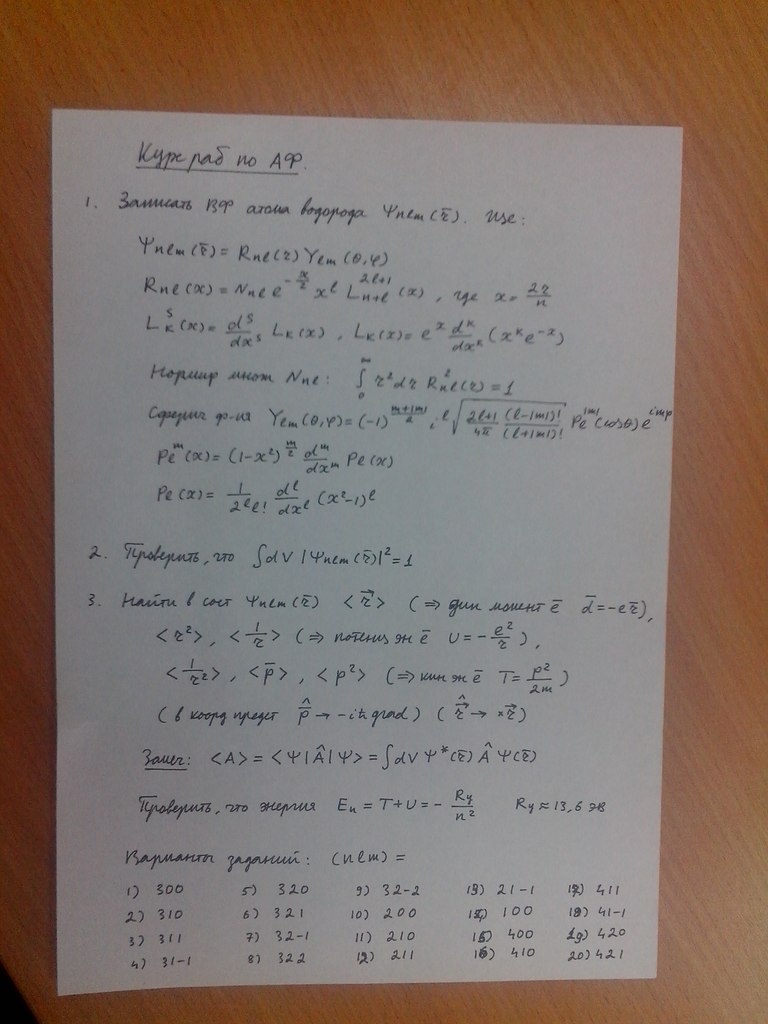 Курс раб по АФ.
1. Записать ВФ атома водорода Ψnlm(r̄). Use:
Ψnlm(r̄) = Rnl(r) Ylm(θ,φ)
Rnl(x) = Nnl e^{-x/2} x^l L_{n+l}^{2l+1}(x), где x = 2r/n
L_k^s(x) = d^s/dx^s L_k(x), L_k(x) = e^x d^k/dx^k (x^k e^{-x})
Нормир множ Nnl: ∫_0^∞ r² dr R²nl(r) = 1
Сферич ф-ия Ylm(θ,φ) = (-1)^{(m+|m|)/2} i^l √(2l+1/4π (l-|m|)!/(l+|m|)!) P_l^{|m|}(cosθ) e^{imφ}
P_l^m(x) = (1-x²)^{m/2} d^m/dx^m P_l(x)
P_l(x) = 1/(2^l l!) d^l/dx^l (x²-1)^l
2. Проверить, что ∫dV |Ψnlm(r̄)|² = 1
3. Найти в сост Ψnlm(r̄) <r⃗> (⇒ дип момент ē d̄ = -er̄),
<r²>, <1/r> (⇒ потенц эн ē U = -e²/r),
<1/r²>, <p̄>, <p²> (⇒ кин эн ē T = p²/2m)
(в коорд предст p̄̂ → -iħ grad) (r⃗̂ → ×r⃗)
Замеч: <A> = <Ψ|Â|Ψ> = ∫dV Ψ*(r̄) Â Ψ(r̄)
Проверить, что энергия En = T+U = -Ry/n² Ry ≈ 13,6 эВ
Варианты заданий: (nlm) =
1) 300 5) 320 9) 32-2 13) 21-1 17) 411
2) 310 6) 321 10) 200 14) 100 18) 41-1
3) 311 7) 32-1 11) 210 15) 400 19) 420
4) 31-1 8) 322 12) 211 16) 410 20) 421